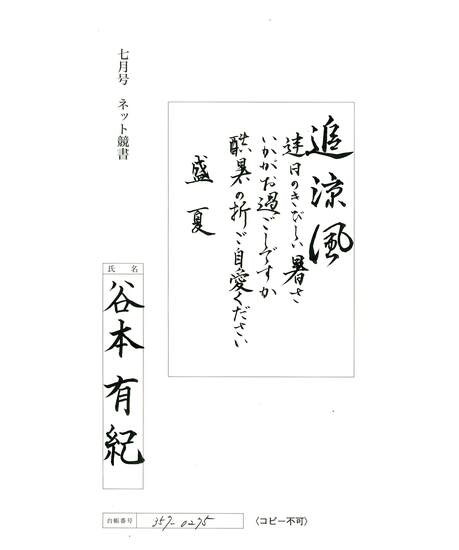 追涼風
連日のきびしい暑さ
いかがお過ごしですか
酷暑の折ご自愛ください
盛夏
七月号 ネット競書
氏名
谷本有紀
台帳番号
357-0275
〈コピー不可〉